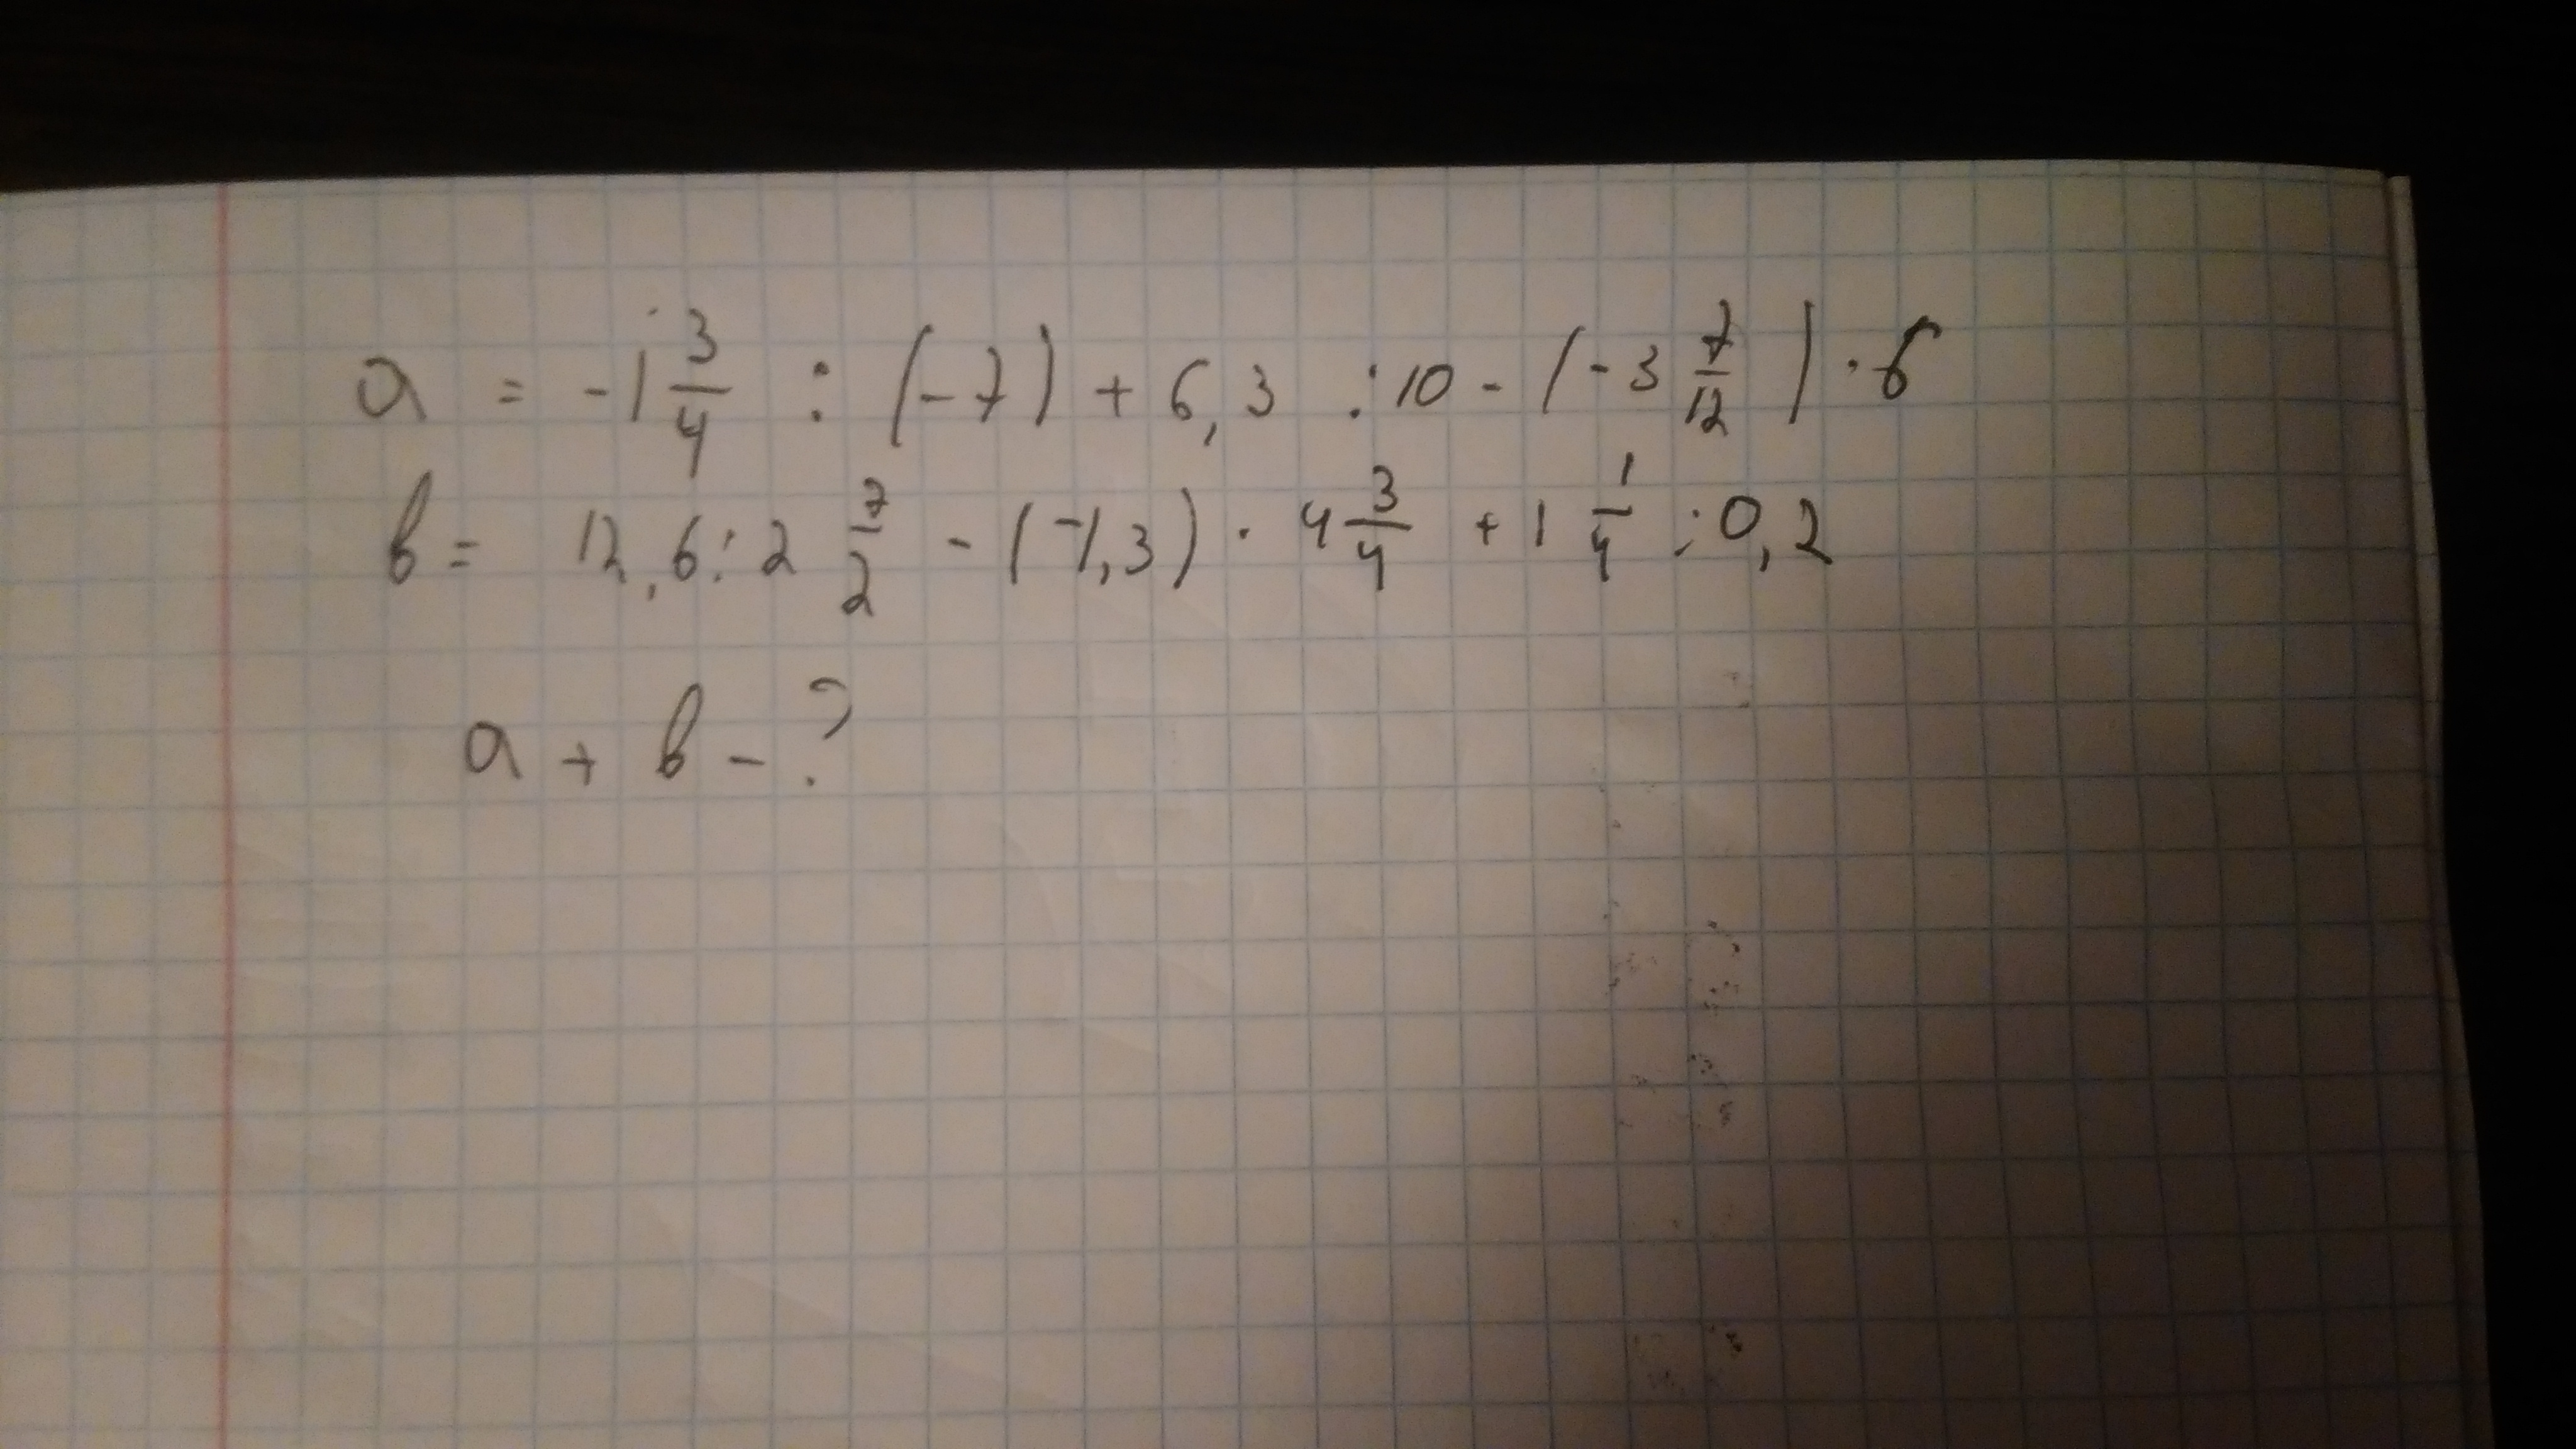 a = -1 3/4 : (-7) + 6,3 : 10 - (-3 7/12) · 6
b = 12,6 : 2 7/2 - (-1,3) · 4 3/4 + 1 1/4 : 0,2
a + b - ?